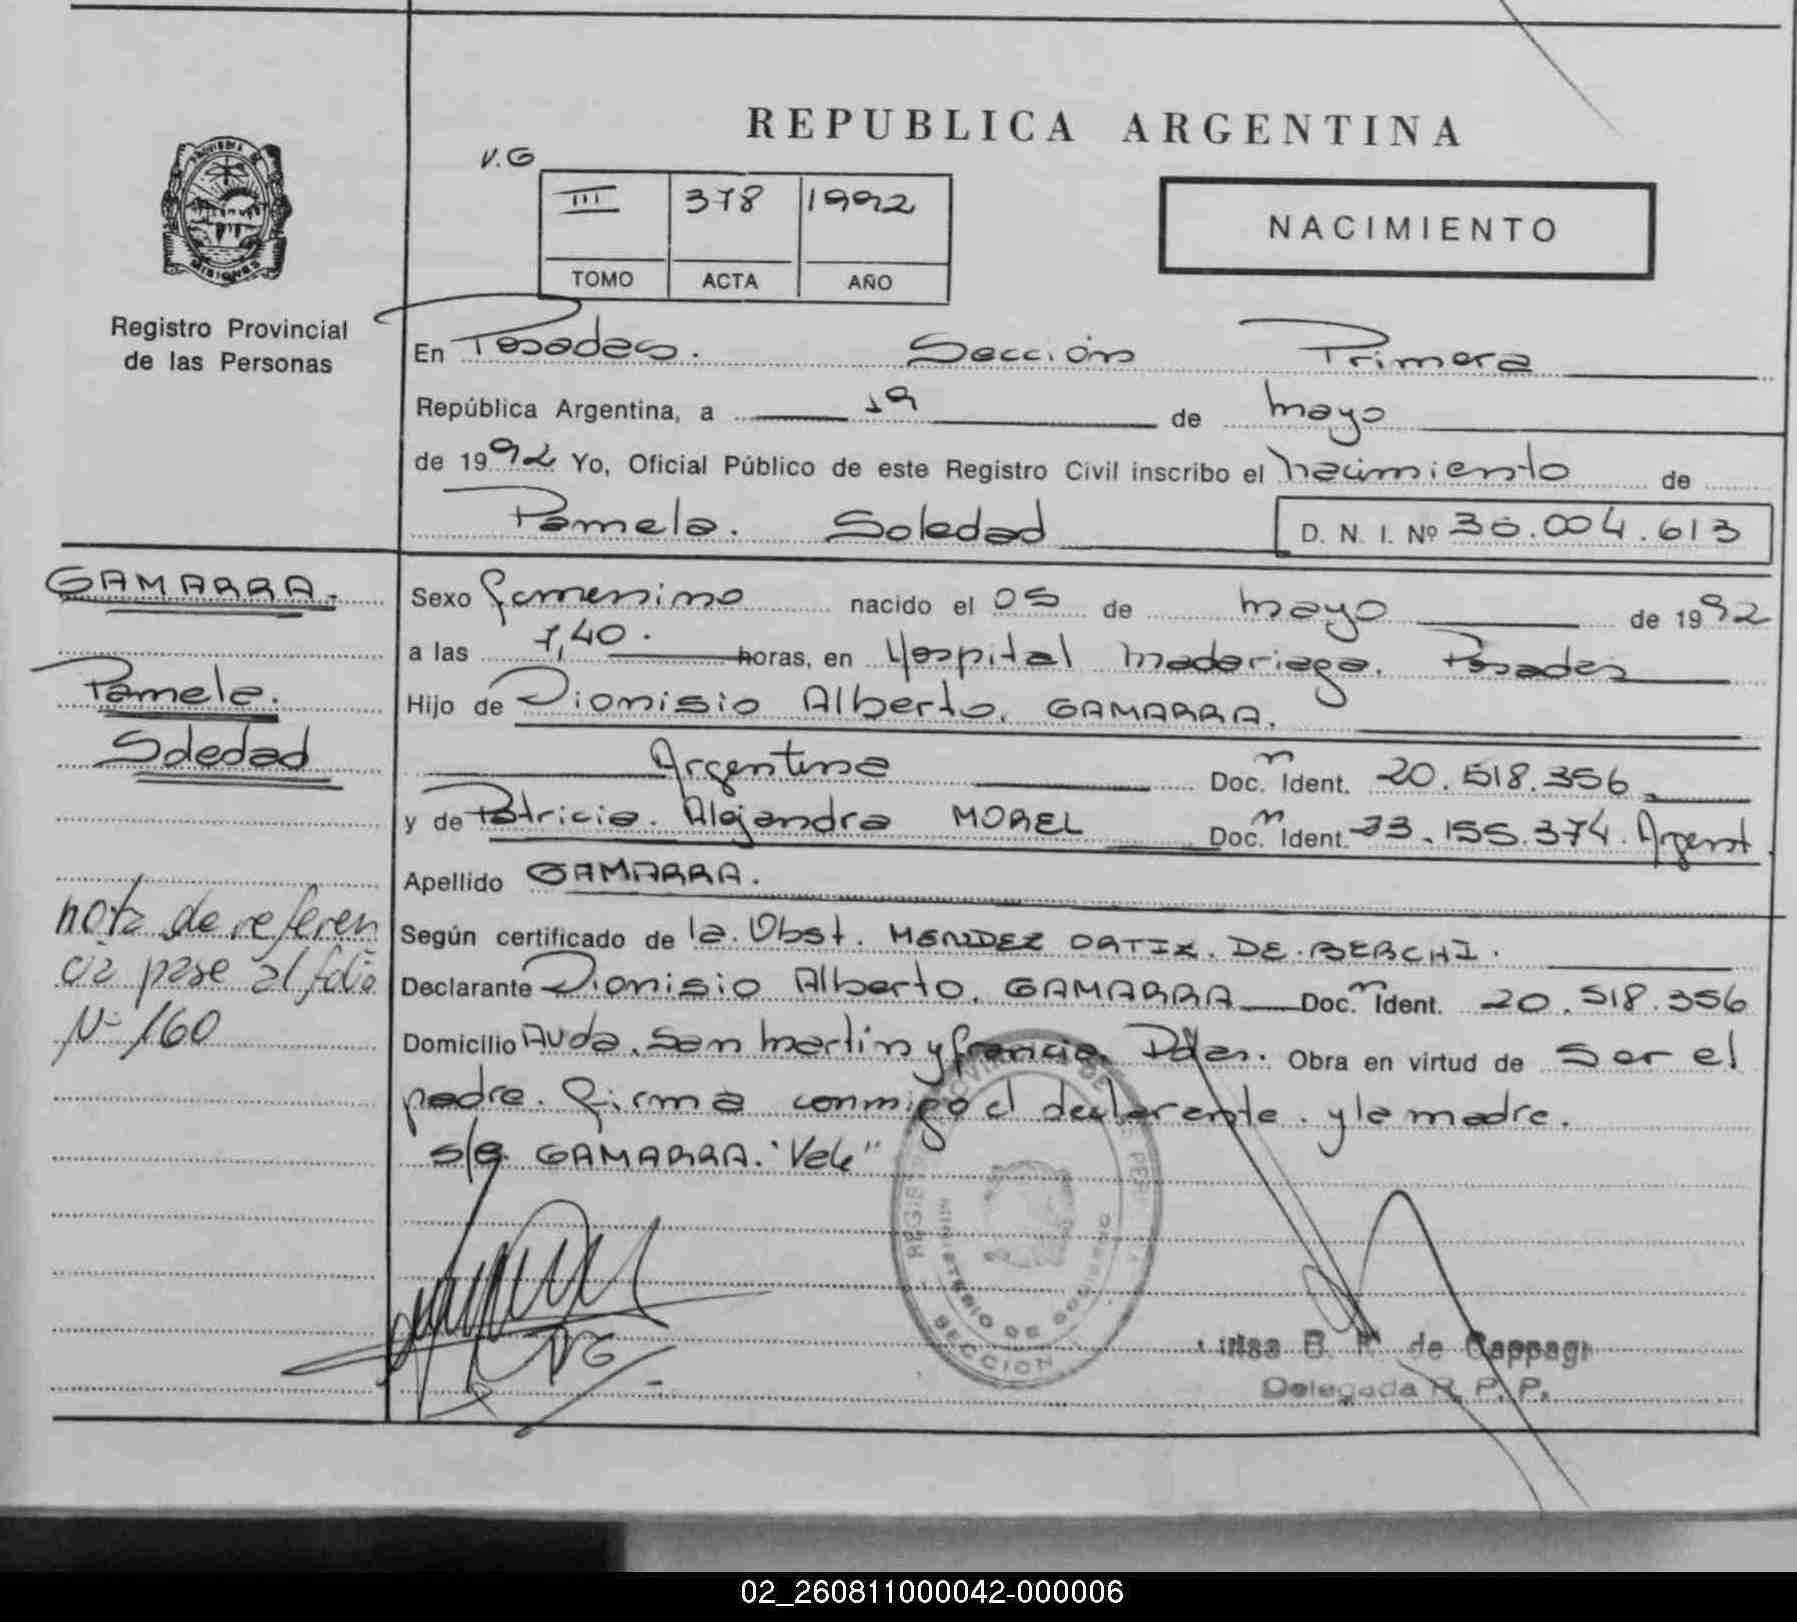 REPUBLICA ARGENTINA
V.G
III 378 1992
TOMO ACTA AÑO
NACIMIENTO
PROVINCIA DE
MISIONES
Registro Provincial
de las Personas
En Posadas. Sección Primera
República Argentina, a 19 de mayo
de 1992 Yo, Oficial Público de este Registro Civil inscribo el nacimiento de
Pamela. Soledad D. N. I. Nº 36.004.613
GAMARRA.
Pamela.
Soledad
Sexo femenino nacido el 05 de mayo de 1992
a las 7,40. horas, en Hospital Madariaga. Posadas
Hijo de Dionisio Alberto. GAMARRA.
Argentina Doc. Ident. 20.518.356
y de Patricia. Alejandra MOREL Doc. Ident. 23.155.374. Argent.
Apellido GAMARRA.
nota de referen
cia pase al folio
Nº 160
Según certificado de la. Obst. MENDEZ ORTIZ. DE. BERCHI.
Declarante Dionisio Alberto. GAMARRA Doc. Ident. 20.518.356
Domicilio Avda. San Martin y francia. Pdas. Obra en virtud de ser el
padre. firma conmigo el declarante. y la madre.
s/e GAMARRA. "Vale"
MINISTERIO DE GOBIERNO
SECCION
B. de Cappagi
Delegada R. P. P.
02_260811000042-000006